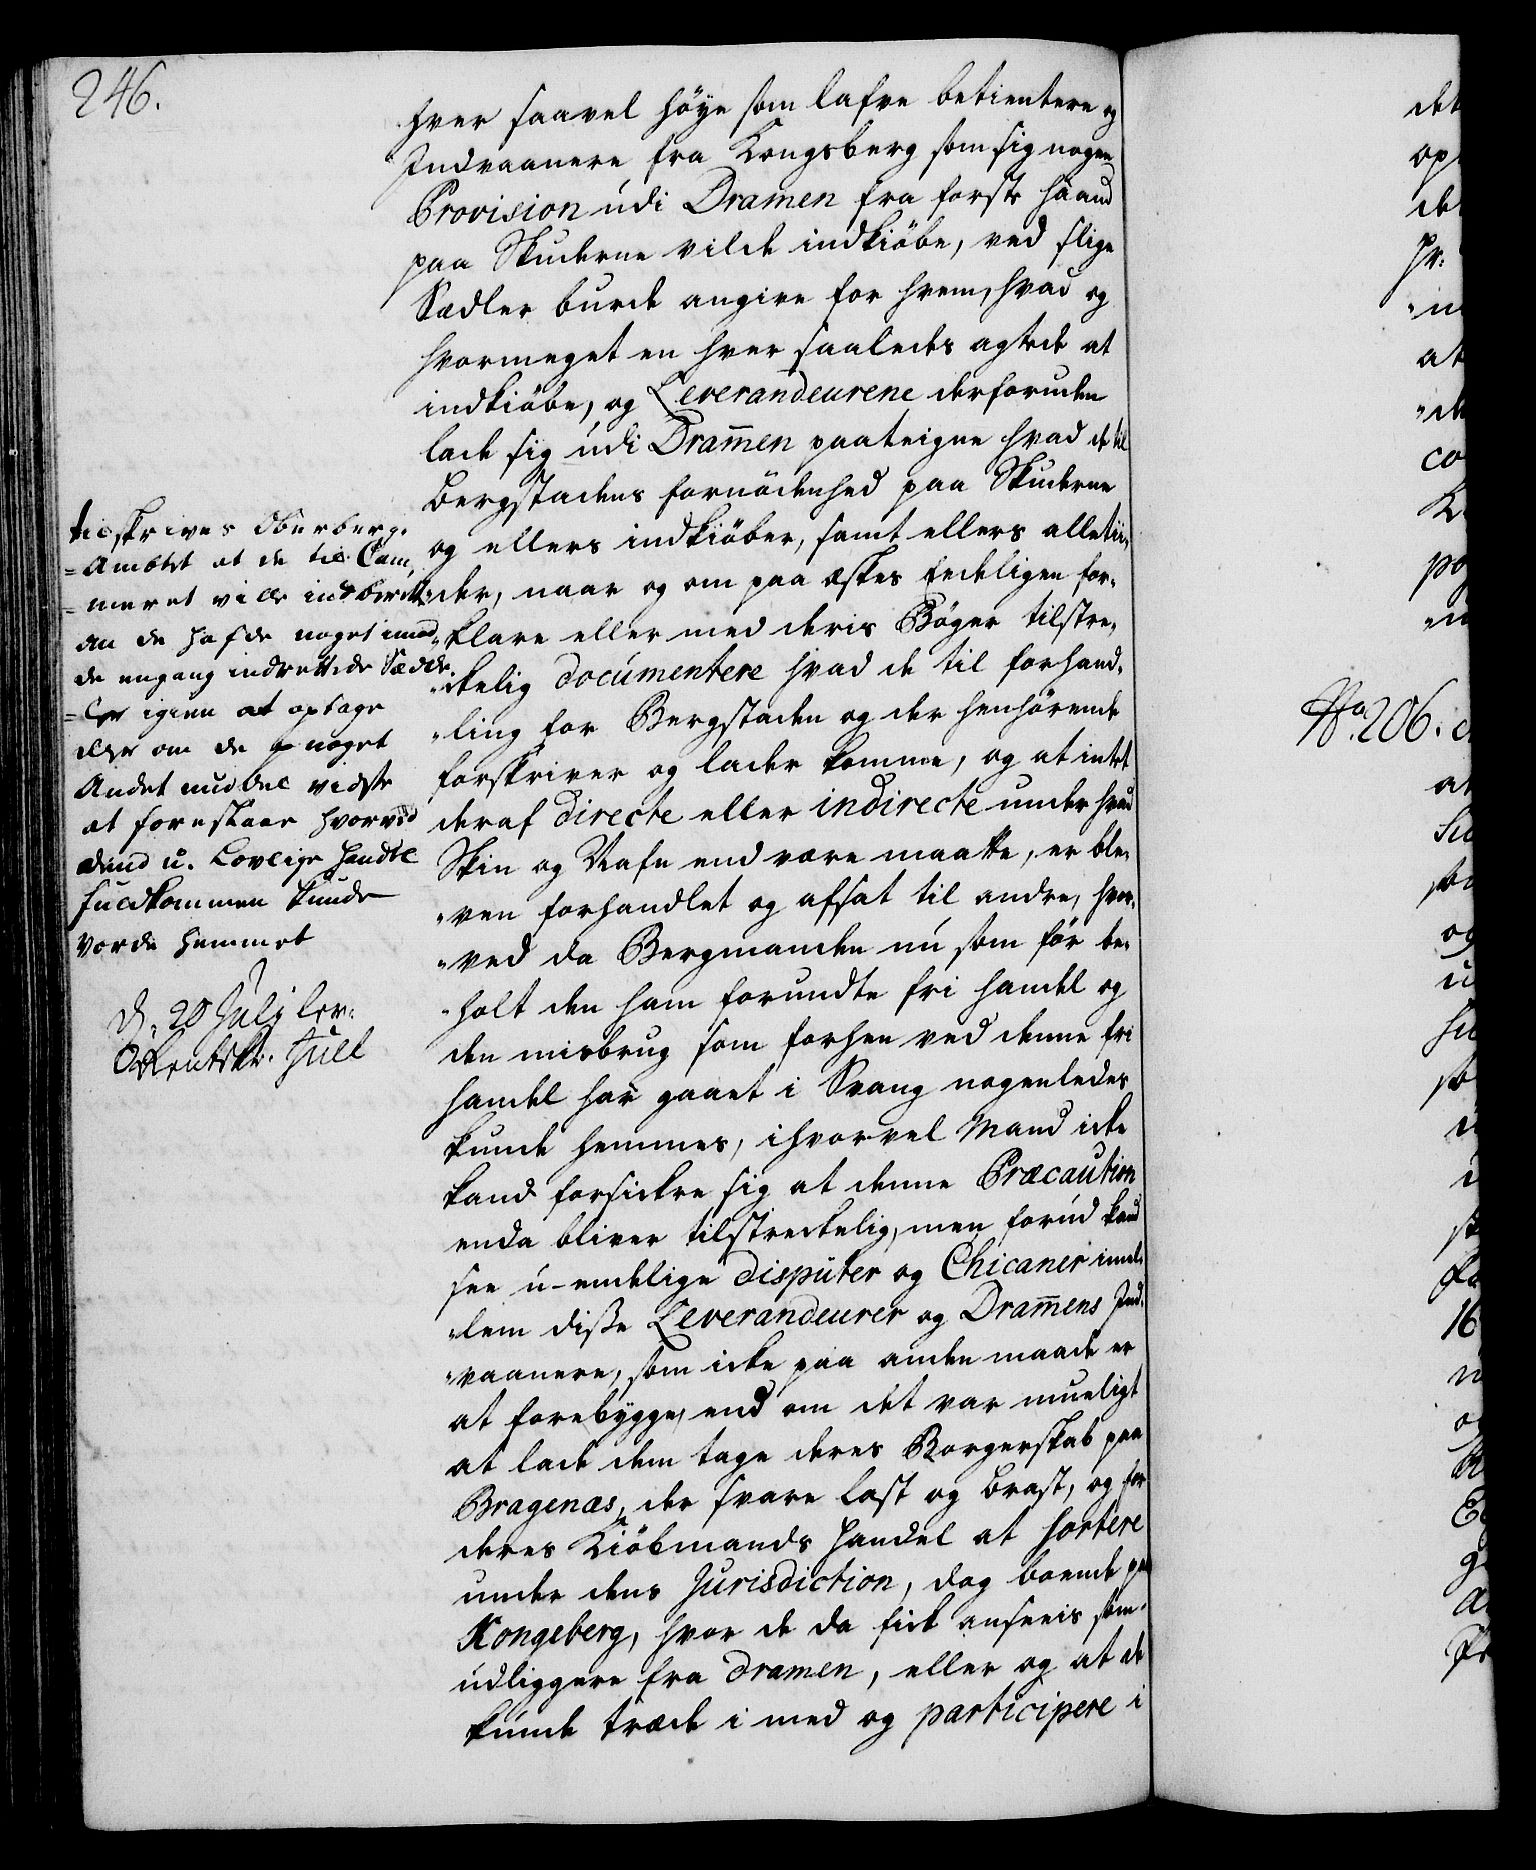 246.
hver saavel höye som lafve betientere og
Indvaanere fra Kongsberg som sig nogen
Provision udi Dramen fra forste haand
paa Skuderne vilde indkiöbe, ved slige
Sedler burde angive for hvem, hvad og
hvormeget en hver saaledes agtede at
indkiöbe, og Leverandeurene desforuden
lade sig udi Dram̄en paateigne hvad de til
Bergstadens fornödenhed paa Skuderne
og ellers indkiöber, samt ellers alletii„
„der, naar og om paa æskes Eedeligen for„
„klare eller med deris Böger tilstre„
„ckelig documentere hvad de til forhand„
„ling for Bergstaden og der henhörende
forskriver og lader komme, og at intet
deraf directe eller indirecte under hvad
Skin og Nafn end være maatte, er ble„
„ven forhandlet og afsat til andre, hvor„
„ved da Bergmanden nu som för be„
„holt den ham forundte fri handel og
den misbrug som forhen ved denne fri
handel har gaaet i Svang nogenledes
kunde hemmes, ihvorvel Mand icke
kand forsickre sig at denne Præcaution
enda bliver tilstreckelig, men forud kand
see u-endelige disputer og Chicaner imel„
„lem disse Leverandeurer og Dram̄ens Ind„
„vaanere, som icke paa anden maade er
at forebygge, end om det var mueligt
at lade dem tage deres Borgerskab paa
Bragenæs, der svare last og brast, og for
deres Kiöbmands Handel at sortere
under dens Jurisdiction, dog boende paa
Kongsberg, hvor de da fick ansees som
udliggere fra Dramen, eller og at de
kunde træde i med og participere i
tilskrives Oberberg-
=Ambtet at de til Cam„
=meret ville indberette
an de hafde noget imod
de engang indrettede Sedde
=ler igien at optage
eller om de noget
Andet middel vidste
at foreslaae hvorved
dend u-Lovlige Handel
fuldkommen kunde
vorde hemmet
d. 20 Julj lev:
Rentskr. Juel
No. 206.